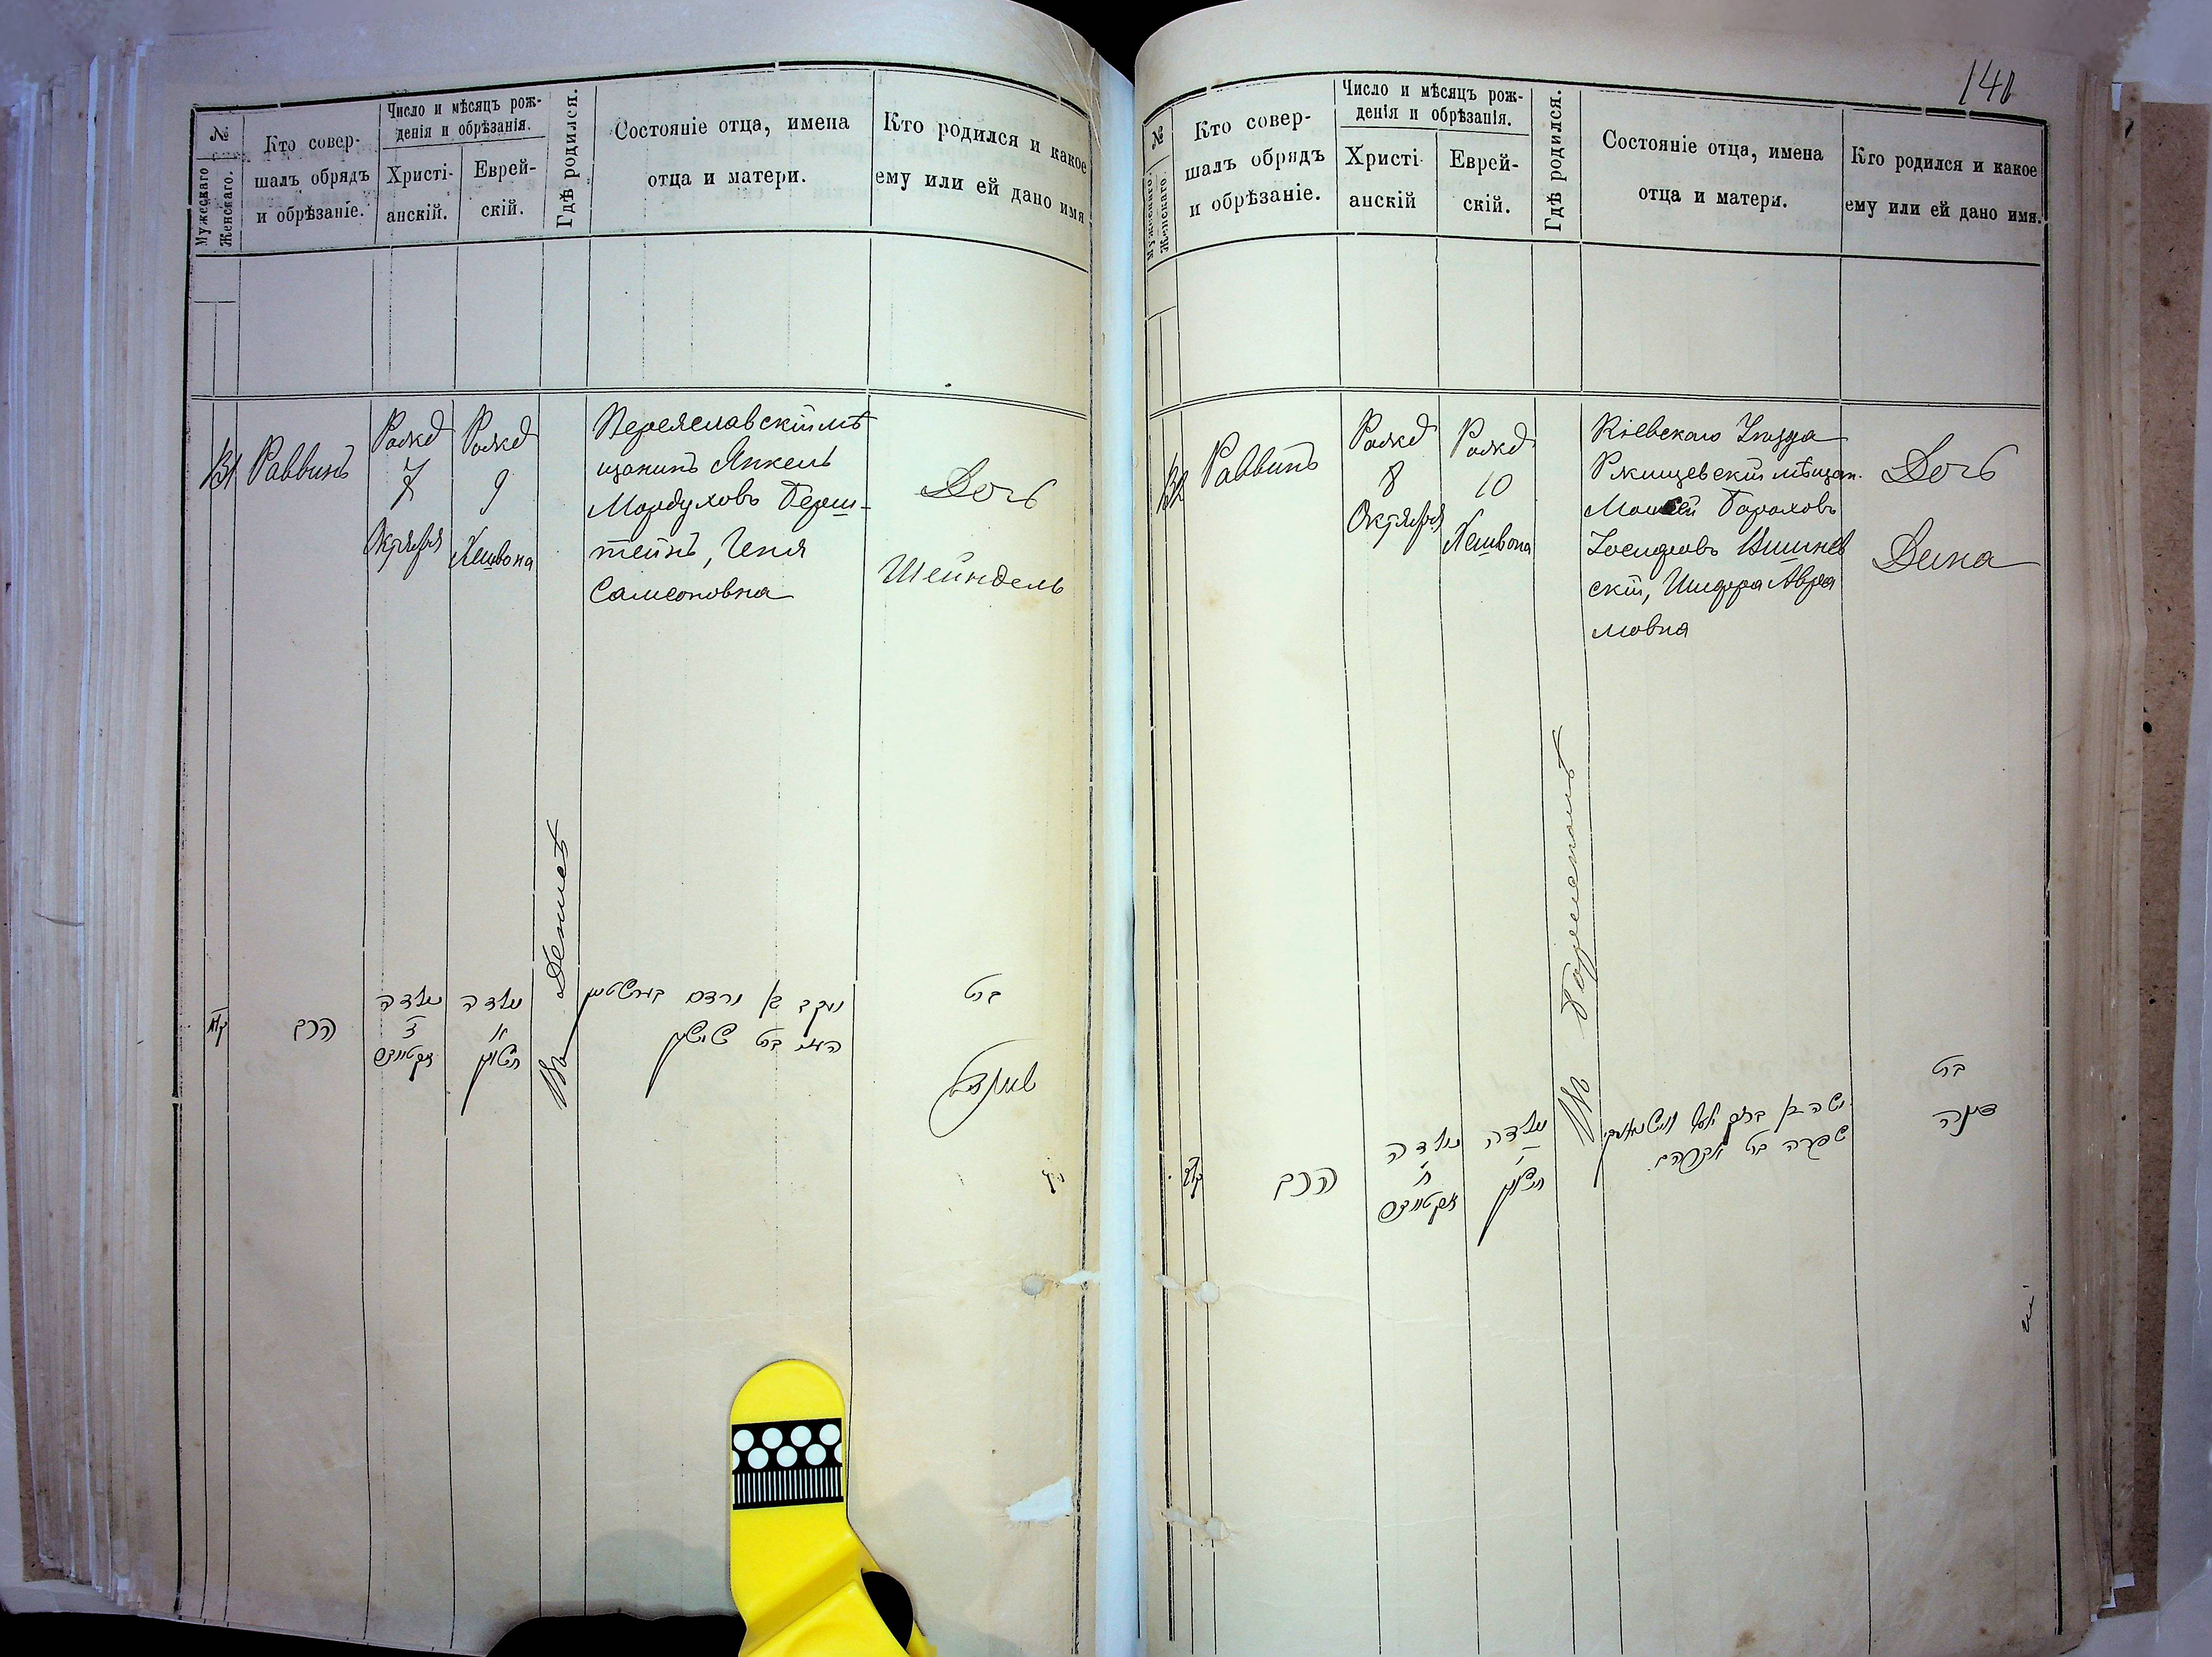 №
Мужескаго
Женскаго.
Кто совер-
шалъ обрядъ
и обрѣзаніе.
Число и мѣсяцъ рож-
денія и обрѣзанія.
Христі-
анскій.
Еврей-
скій.
Гдѣ родился.
Состояніе отца, имена
отца и матери.
Кто родился и какое
ему или ей дано имя
131
Раввинъ
Рожд
7
Октября
Рожд
9
Хешвона
Переяславскій мѣ
щанинъ Янкель
Мордуховъ Берш-
тейнъ, Геня
Самсоновна
Дочь
Шейндель
הרב
נולדה
ז
אקטיובר
נולדה
חשון
יעקב בן
בת
בת
140
№
Мужескаго
Женскаго.
Кто совер-
шалъ обрядъ
и обрѣзаніе.
Число и мѣсяцъ рож-
денія и обрѣзанія.
Христі-
анскій
Еврей-
скій.
Гдѣ родился.
Состояніе отца, имена
отца и матери.
Кто родился и какое
ему или ей дано имя.
132
Раввинъ
Рожд
8
Октября
Рожд
10
Хешвона
Кіевскаго Уѣзда
Ржищевскій мѣщан.
Мошкей Бораховъ
Іосифовъ Вишнев
скій, Шифра Авра
мовна
Дочь
Дина
הרב
נולדה
ח
נולדה
י
חשון
משה בן ברוך יוסף
שפרה בת אברהם
בת
דינה